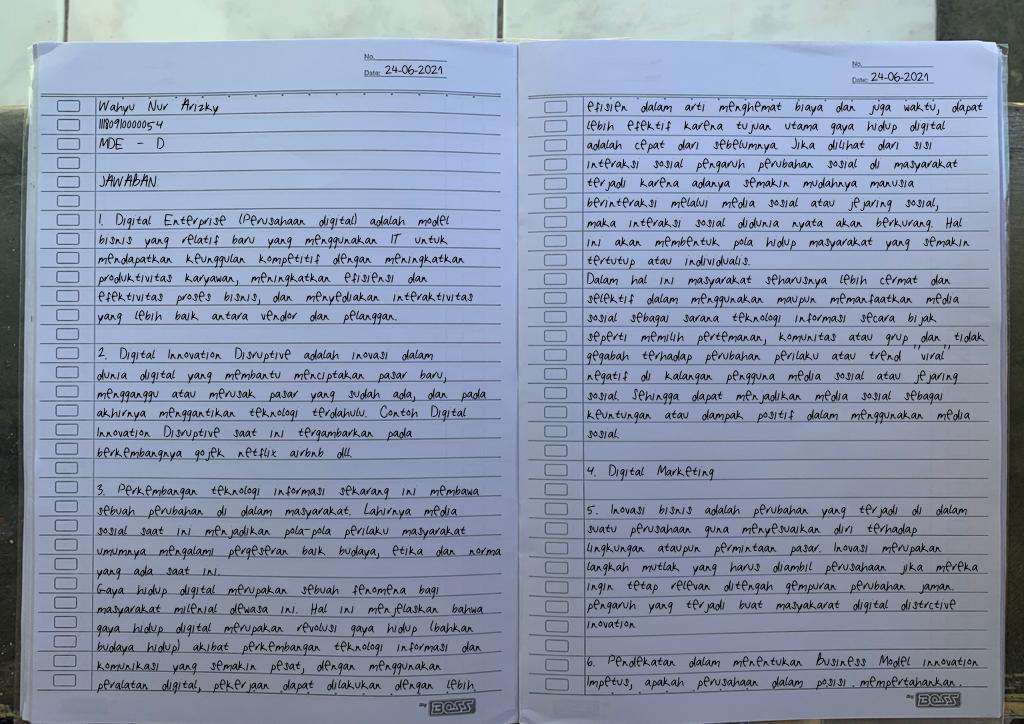 No.
Date: 24-06-2021
Wahyu Nur Arizky
11180910000054
MDE - D
JAWABAN
1. Digital Enterprise (Perusahaan digital) adalah model
bisnis yang relatif baru yang menggunakan IT untuk
mendapatkan keunggulan kompetitif dengan meningkatkan
produktivitas karyawan, meningkatkan efisiensi dan
efektivitas proses bisnis, dan menyediakan interaktivitas
yang lebih baik antara vendor dan pelanggan.
2. Digital Innovation Disruptive adalah inovasi dalam
dunia digital yang membantu menciptakan pasar baru,
mengganggu atau merusak pasar yang sudah ada, dan pada
akhirnya menggantikan teknologi terdahulu. Contoh Digital
Innovation Disruptive saat ini tergambarkan pada
berkembangnya gojek netflix airbnb dll.
3. Perkembangan teknologi informasi sekarang ini membawa
sebuah perubahan di dalam masyarakat. Lahirnya media
sosial saat ini menjadikan pola-pola perilaku masyarakat
umumnya mengalami pergeseran baik budaya, etika dan norma
yang ada saat ini.
Gaya hidup digital merupakan sebuah fenomena bagi
masyarakat milenial dewasa ini. Hal ini menjelaskan bahwa
gaya hidup digital merupakan revolusi gaya hidup (bahkan
budaya hidup) akibat perkembangan teknologi informasi dan
komunikasi yang semakin pesat, dengan menggunakan
peralatan digital, pekerjaan dapat dilakukan dengan lebih
By BOSS
No.
Date: 24-06-2021
efisien dalam arti menghemat biaya dan juga waktu, dapat
lebih efektif karena tujuan utama gaya hidup digital
adalah cepat dari sebelumnya Jika dilihat dari sisi
interaksi sosial pengaruh perubahan sosial di masyarakat
terjadi karena adanya semakin mudahnya manusia
berinteraksi melalui media sosial atau jejaring sosial,
maka interaksi sosial didunia nyata akan berkurang. Hal
ini akan membentuk pola hidup masyarakat yang semakin
tertutup atau individualis.
Dalam hal ini masyarakat seharusnya lebih cermat dan
selektif dalam menggunakan maupun memanfaatkan media
sosial sebagai sarana teknologi informasi secara bijak
seperti memilih pertemanan, komunitas atau grup dan tidak
gegabah terhadap perubahan perilaku atau trend "viral"
negatif di kalangan pengguna media sosial atau jejaring
sosial sehingga dapat menjadikan media sosial sebagai
keuntungan atau dampak positif dalam menggunakan media
sosial.
4. Digital Marketing
5. Inovasi bisnis adalah perubahan yang terjadi di dalam
suatu perusahaan guna menyesuaikan diri terhadap
lingkungan ataupun permintaan pasar. Inovasi merupakan
langkah mutlak yang harus diambil perusahaan jika mereka
ingin tetap relevan ditengah gempuran perubahan jaman.
pengaruh yang terjadi buat masyakarat digital distrctive
inovation
6. Pendekatan dalam menentukan Business Model innovation
Impetus, apakah perusahaan dalam posisi mempertahankan
By BOSS